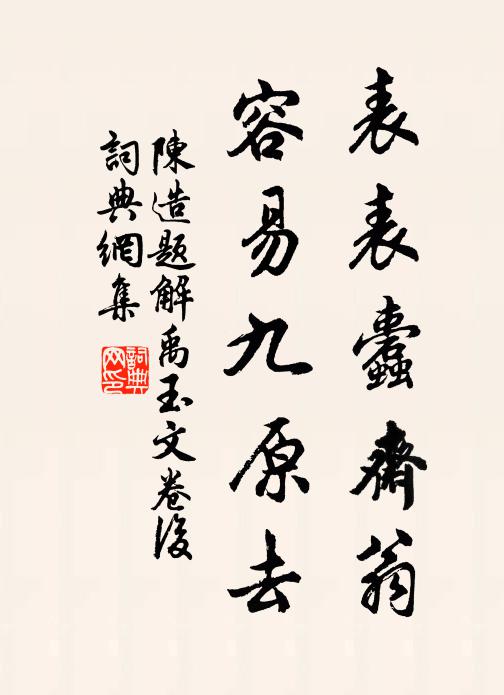 表表蠹齋翁
容易九原去
陳造題解禹玉文卷後
詞典網集
詞典
网印